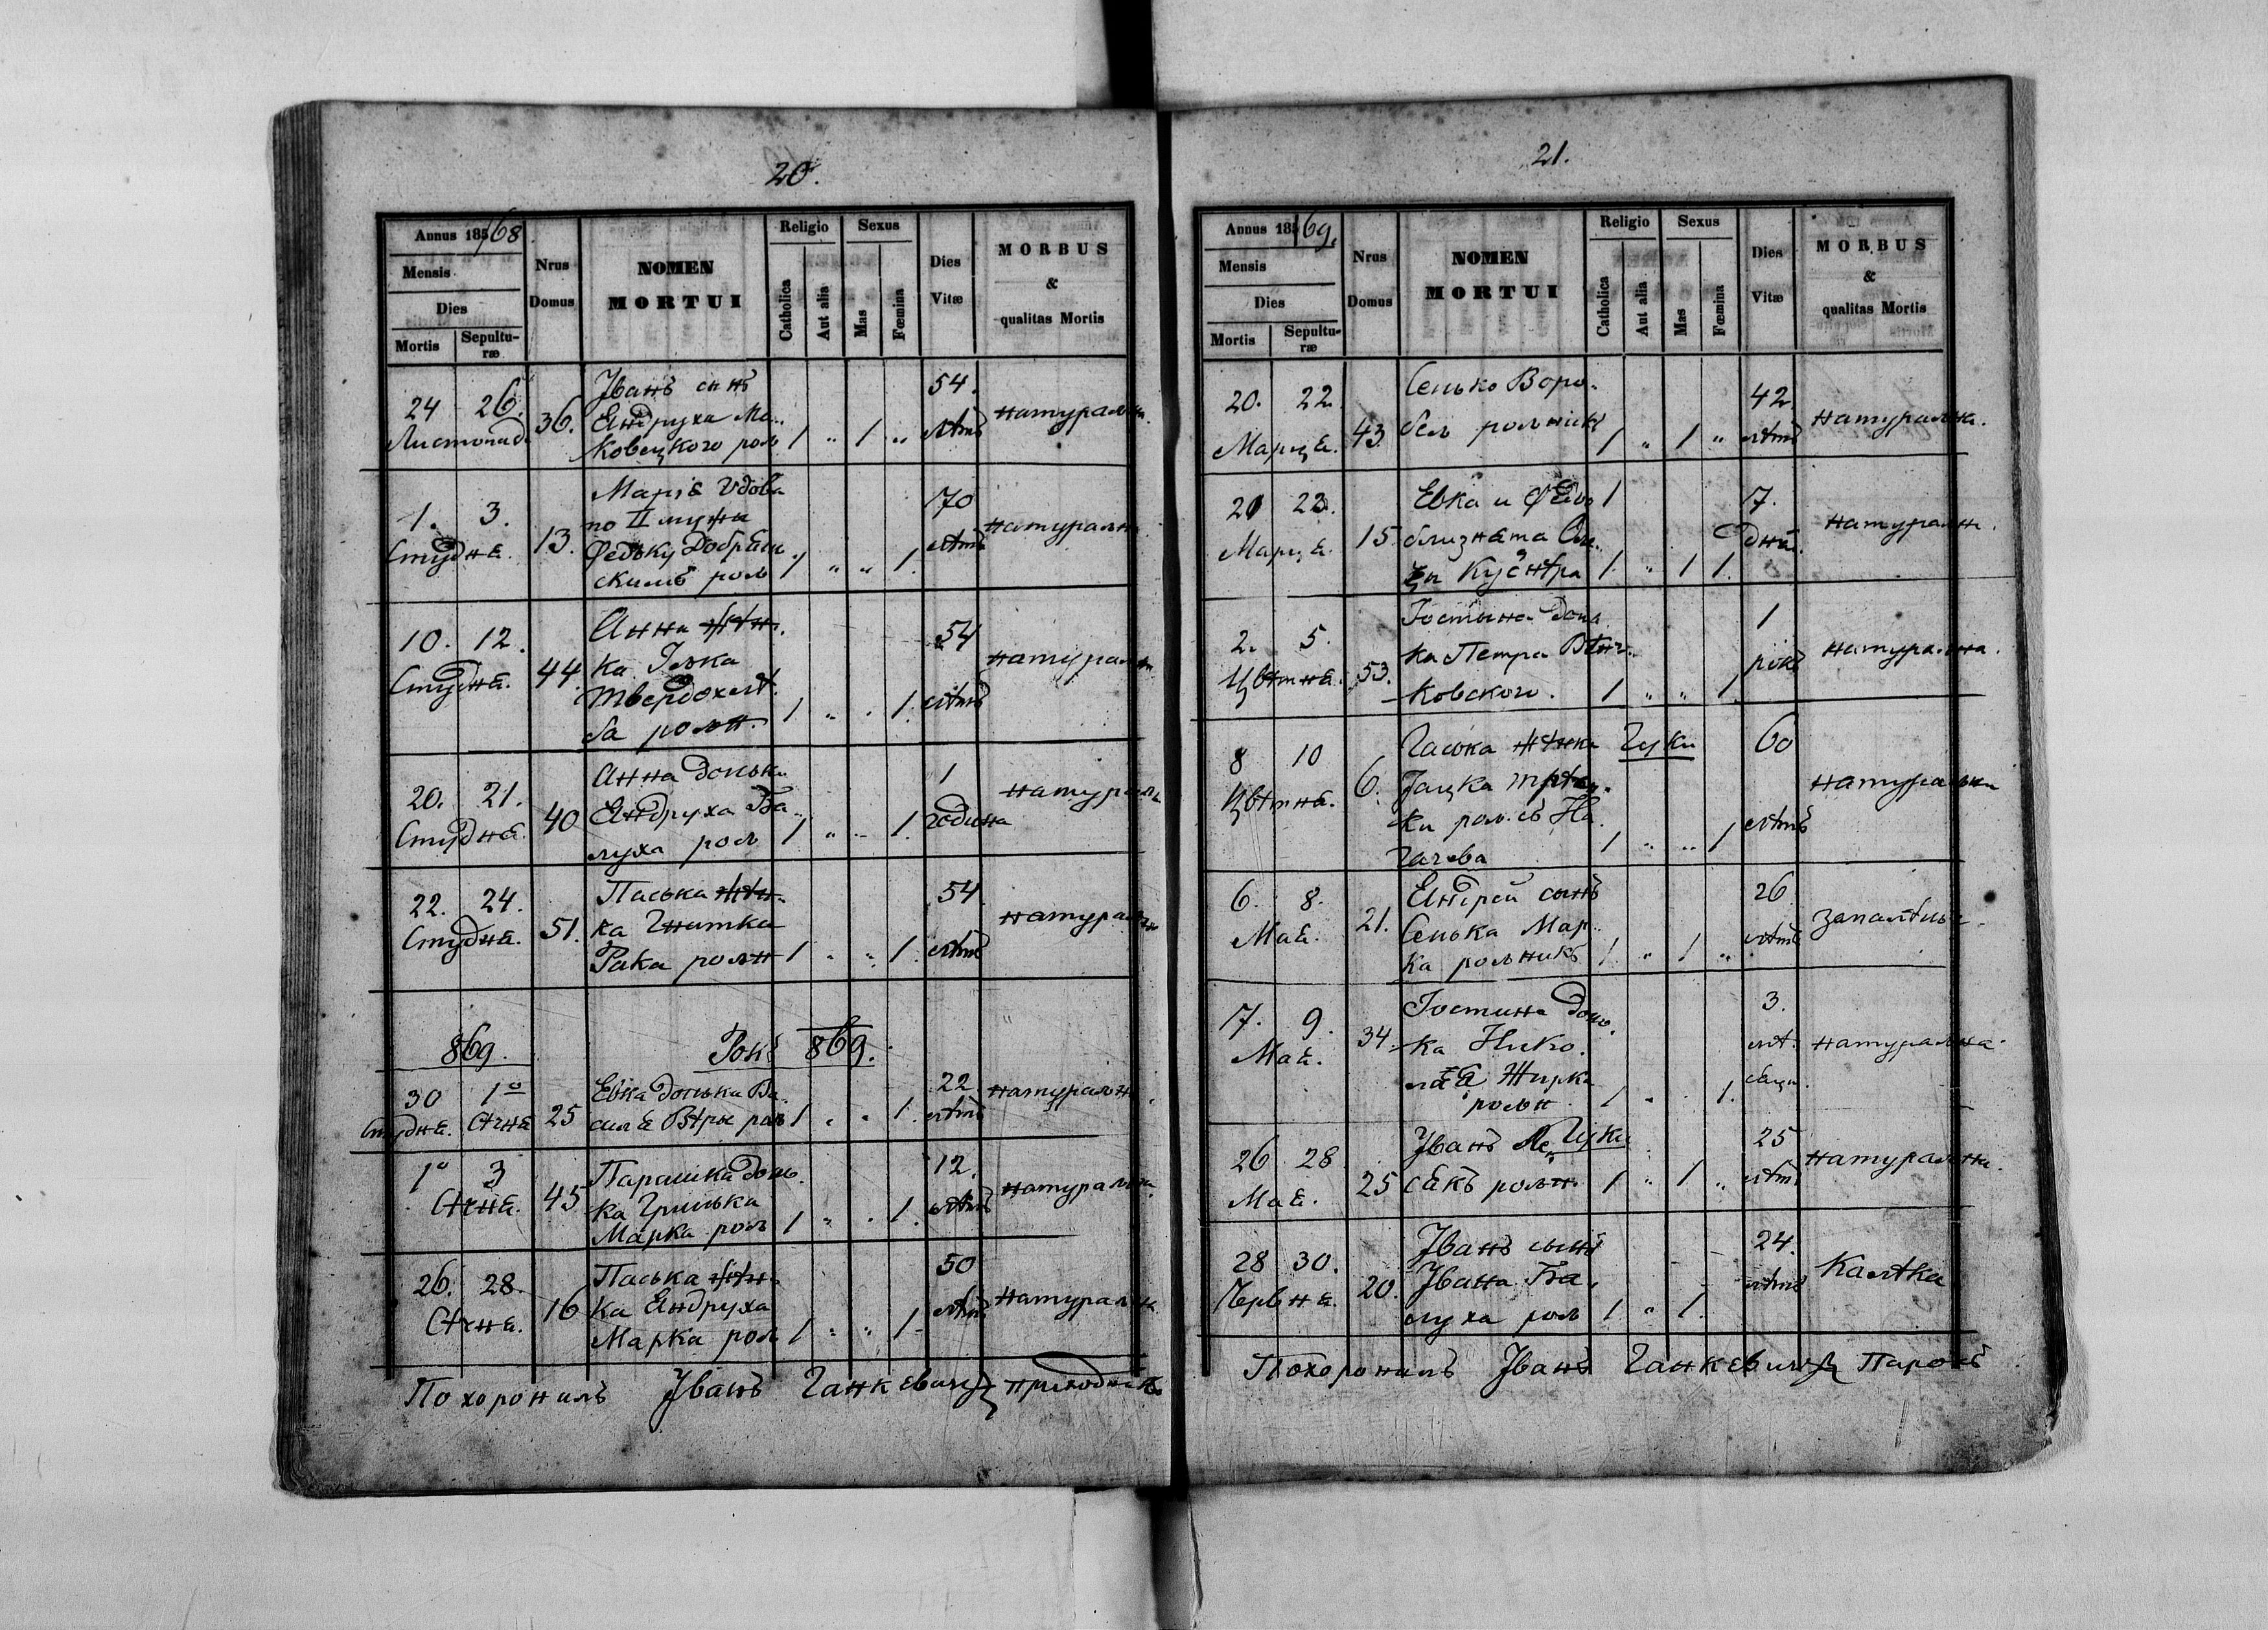 20.
Annus 185/68.
Mensis
Dies
Mortis
Sepultu-
ræ
Nrus
Domus
NOMEN
MORTUI
Religio
Catholica
Aut alia
Sexus
Mas
Fœmina
Dies
Vitæ
MORBUS
&
qualitas Mortis
24 26.
Листопад.
36.
Іванъ сынъ
Андруха Ма-
ковецкого рол
1 " 1 "
54.
лѣтъ
натуральн.
1. 3.
Студня.
13.
Марія вдова
по II мужи
Федьку
скимъ рол
1 " " 1.
70
лѣтъ
натуральн.
10. 12.
Студня.
44.
Анна жѣн.
ка Ілька
Твердохлѣ.
ба рольн.
1 " . 1.
54
лѣтъ
натуральн
20. 21.
Студня.
40
Анна донька
Андруха Ба-
луха рол
1 " .. 1.
1
година
натуральн
22. 24.
Студня.
51.
Паська жѣн-
ка Гнатка
Рака рольн
1 . " 1.
54
лѣтъ
натуральн
869.
Рокъ 869.
30 1º
Студня. Сѣчня
25
Евка донька Ва-
силя Вѣтры рол
1 . . 1.
22
лѣтъ
натуральн.
1º 3
Сѣчня.
45
Парашка донь.
ка Гринька
Марка рол
1 " . 1.
12.
лѣтъ
натуральн.
26. 28.
Сѣчня.
16
Паська жѣн-
ка Андруха
Марка рол
1 " " 1.
50
лѣтъ
натуральн.
Похоронилъ Іванъ Ганкевичъ приходникъ
21.
Annus 185/69.
Mensis
Dies
Mortis
Sepultu-
ræ
Nrus
Domus
NOMEN
MORTUI
Religio
Catholica
Aut alia
Sexus
Mas
Fœmina
Dies
Vitæ
MORBUS
&
qualitas Mortis
20. 22.
Марця.
43.
Сенько Воро-
бель рольникъ
1 " 1 "
42.
лѣтъ
натуральна.
21 23.
Марця.
15.
Евка и 1
близнята
1. " 1 1.
7.
дній.
натуральн.
2. 5.
Цвѣтня.
53.
Іостына донь
ка Петра
ковского.
1 " " 1
1
рокъ
натуральна.
8 10
Цвѣтня.
6.
Гаська жѣнка Гуки
Яцка
ки рол. съ На
гачева
1 " " 1
60
лѣтъ
натуральн
6. 8.
Мая.
21.
Андрей сынъ
Сенька Мар.
ка рольникъ
1. " 1 "
26
лѣтъ
запалѣнье.
7. 9.
Мая.
34.
Іостина донь.
ка Нико.
лая Жирка
рольн.
1 . . 1.
3.
лѣт.
натуральна.
26 28
Мая.
25
Іванъ Гуки
сякъ рольн.
1 " 1 "
25
лѣтъ
натуральн.
28 30.
Червня.
20.
Іванъ сынъ
Івана Ба.
луха рол
1 " 1.
24.
лѣтъ
калѣка
Похоронилъ Іванъ Ганкевичъ Парохъ